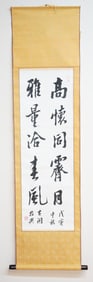 高懷同霽月
雅量洽春風
戊寅